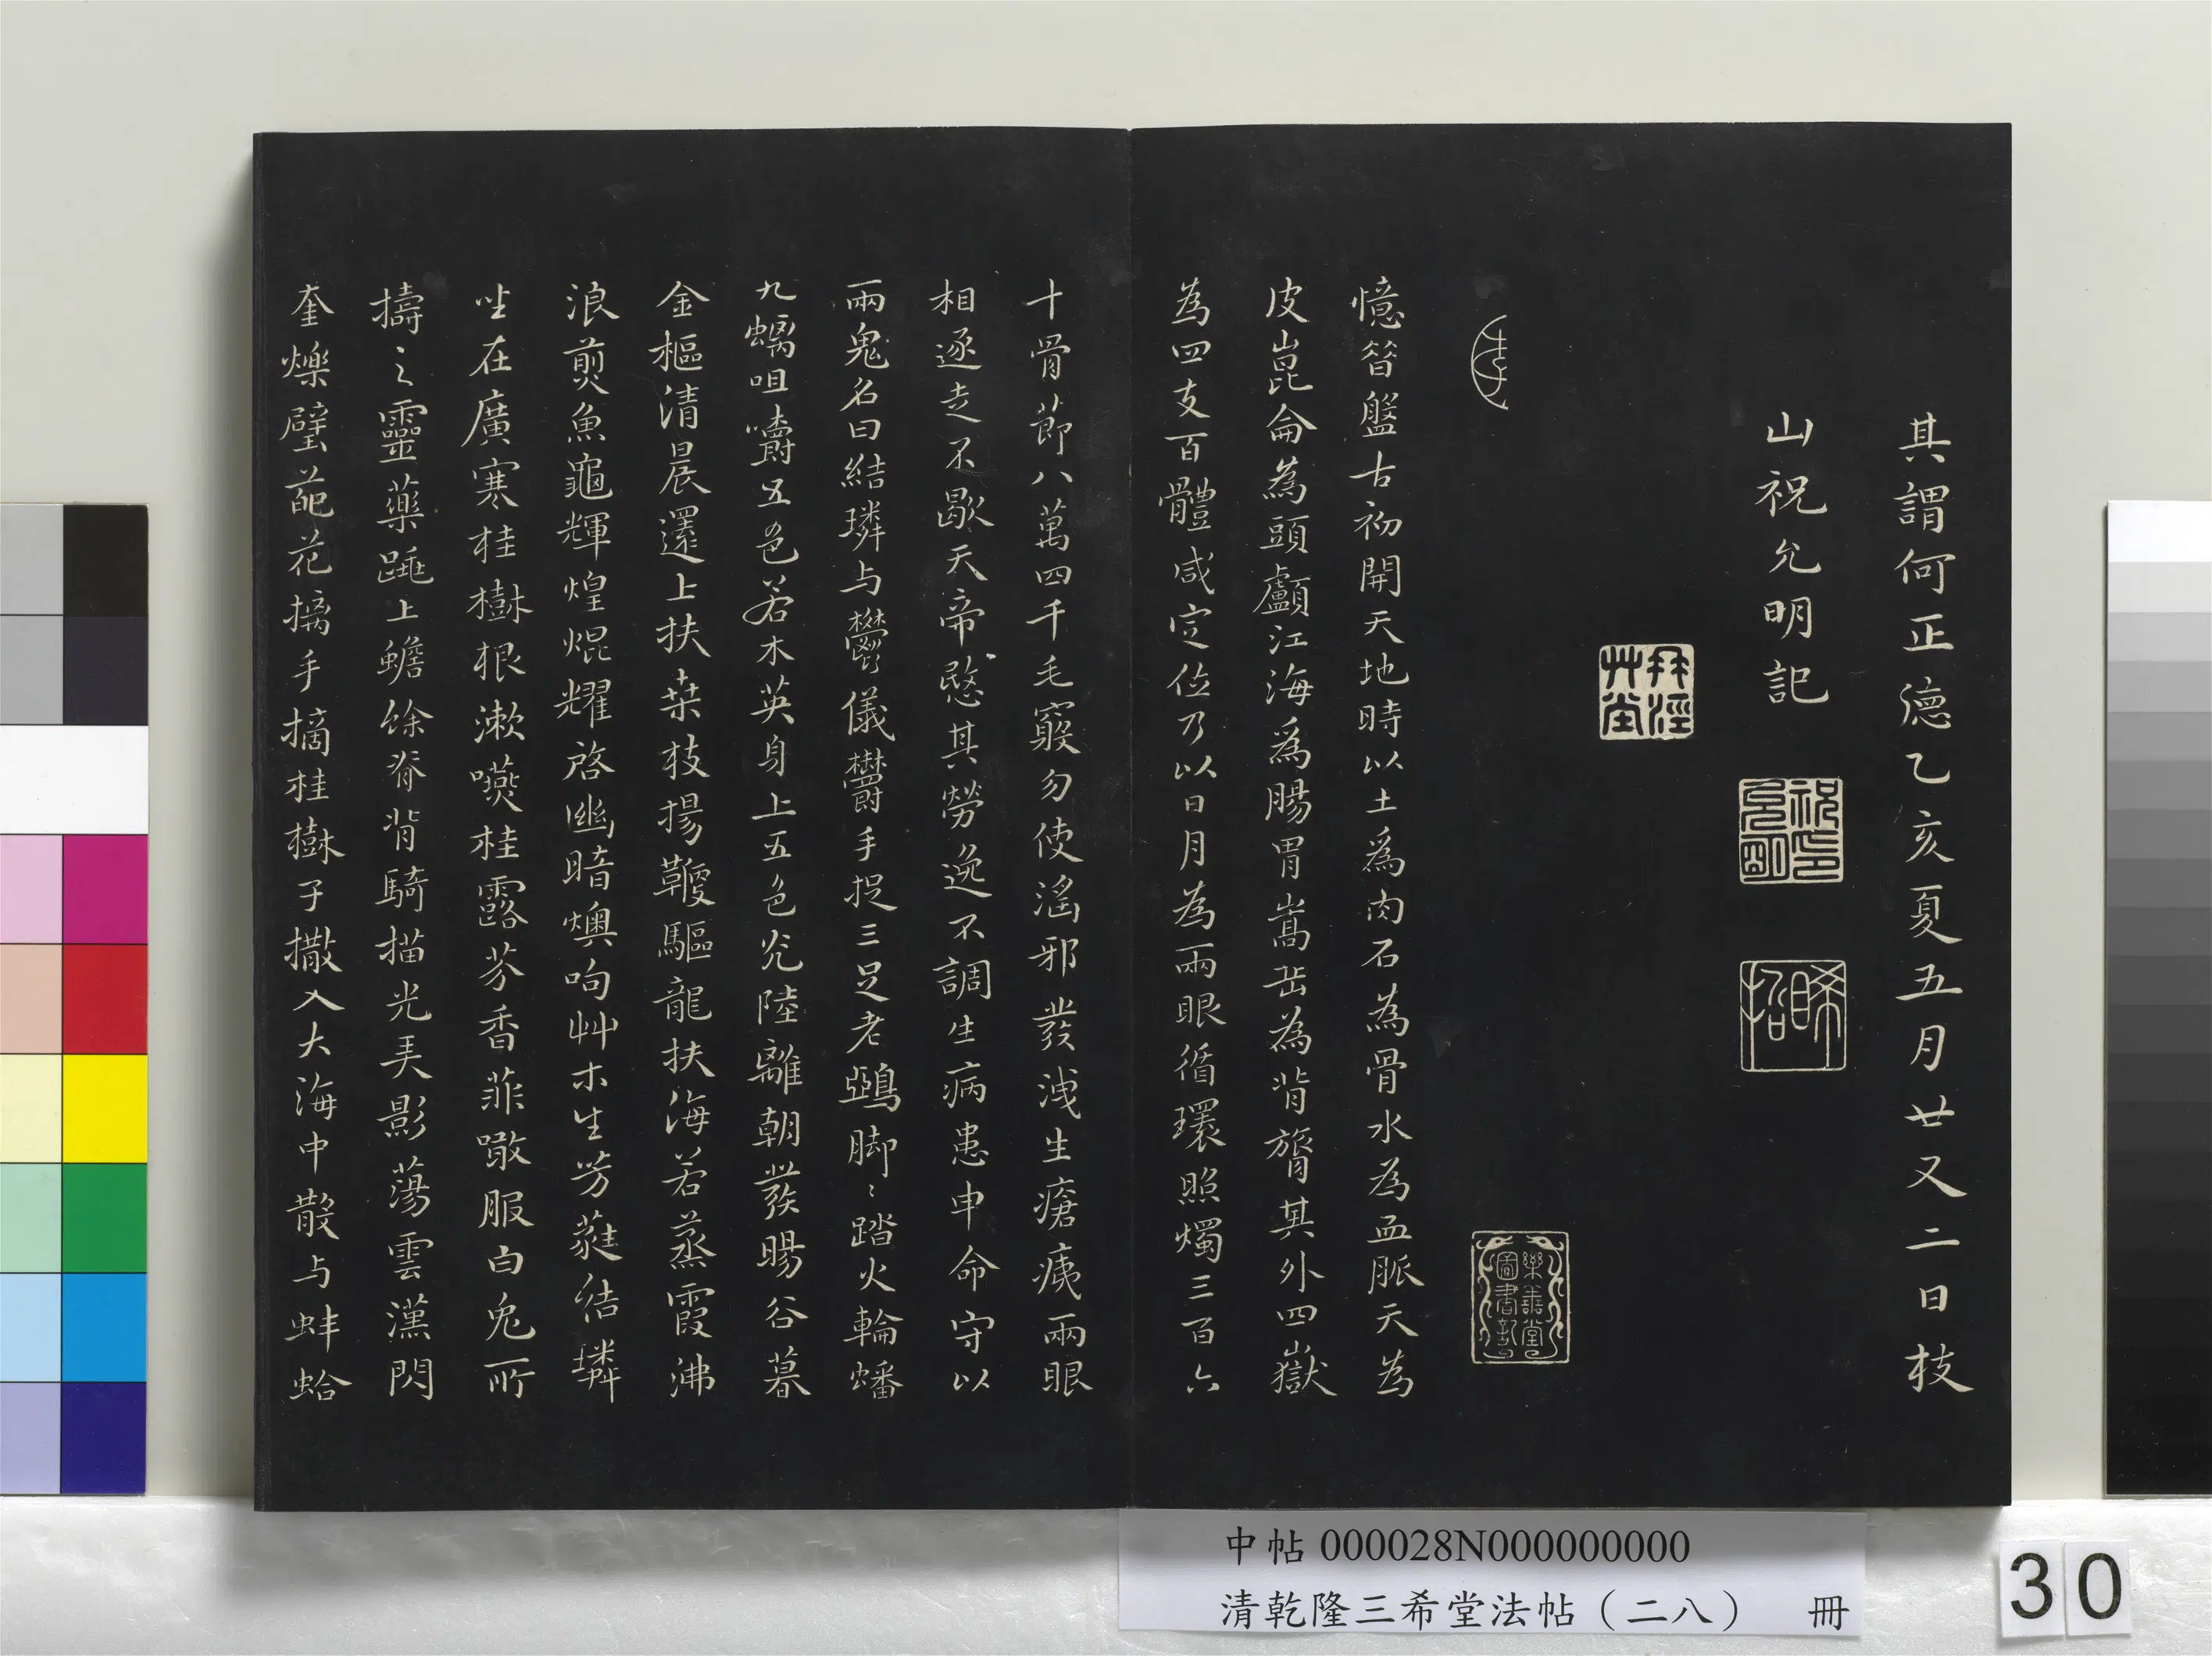 其謂何正德乙亥夏五月廿又二日枝
山祝允明記
祝允明印
晞喆
拜涇艸堂
樂善堂圖書記
憶昝盤古初開天地時以土為肉石為骨水為血脈天為
皮崑侖為頭顱江海為腸胃嵩岳為背膂其外四嶽
為四支百體咸定位乃以日月為兩眼循環照燭三百六
十骨莭八萬四千毛竅勿使滛邪發洩生瘡痍兩眼
相逐走不歇天帝愍其勞逸不調生病患申命守以
兩鬼名曰結璘与鬱儀欝手捉三足老鵶脚〻踏火輪蟠
九螭咀嚼五色若木英身上五色光陸離朝發暘谷暮
金樞清晨還上扶桒枝揚鞭驅龍扶海若蒸霞沸
浪煎魚龜輝煌焜耀啓幽暗燠呴艸木生芳蕤結璘
坐在廣寒桂樹根漱嚥桂露芬香菲噉服白兔所
擣之靈藥𨂻上蟾蜍脊背騎描光弄影蕩雲漢閃
奎爍璧葩花摛手摘桂樹子撒入大海中散与蚌蛤
中帖 000028N000000000
清乾隆三希堂法帖（二八） 冊
30